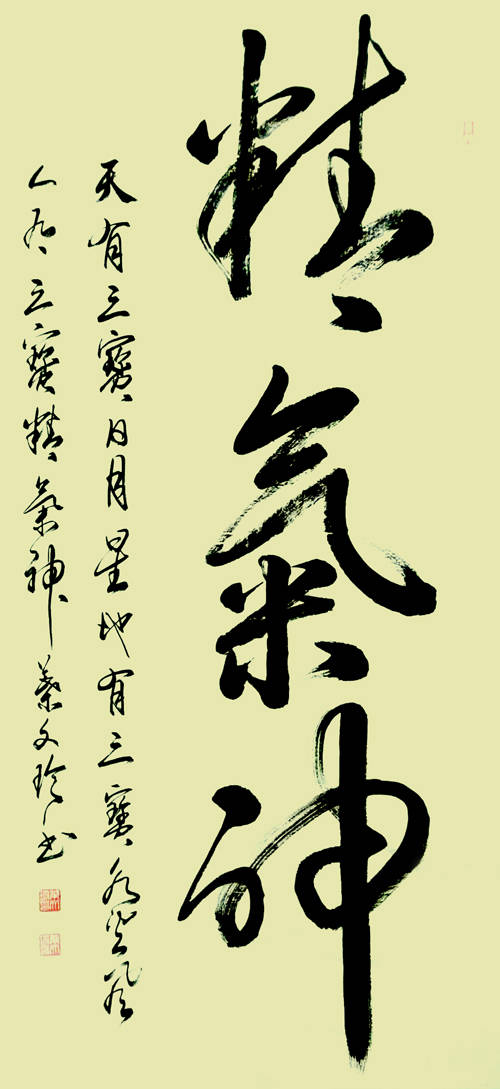 精氣神
天有三寶日月星地有三寶水火風
人有三寶精氣神 文書